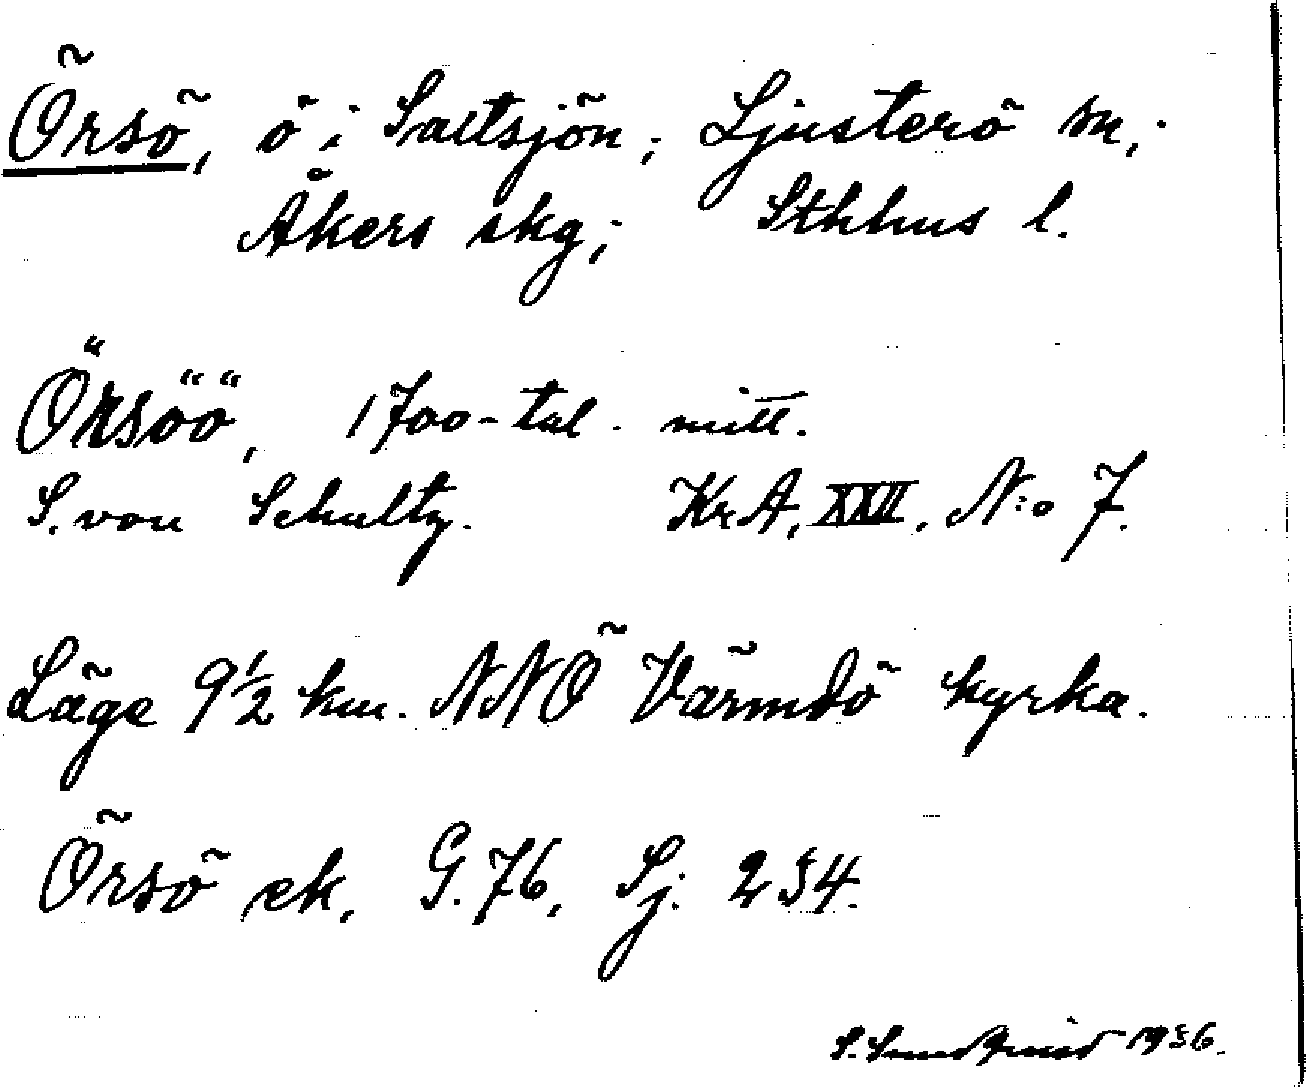 Örsö, ö i Saltsjön; Ljusterö sn,;
Åkers skg; Sthlms l.
Örsöö, 1700-tal. mitt.
S. von Schultz. KrA, XXII, N:o 7.
Läge 9½ km. NNÖ Värmdö kyrka.
Örsö ek. G. 76, Sj. 234.
S. 1936.